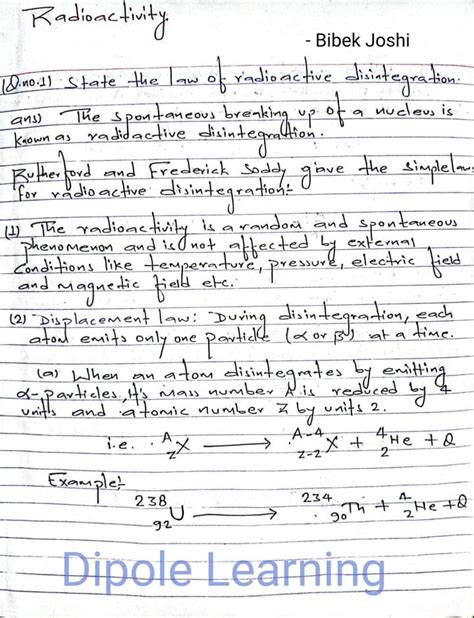 Radioactivity.
- Bibek Joshi
(Q.no.1) State the law of radioactive disintegration.
ans) The spontaneous breaking up of a nucleus is
known as radioactive disintegration.
Rutherford and Frederick Soddy gave the simple laws
for radioactive disintegration:-
(1) The radioactivity is a random and spontaneous
phenomenon and is not affected by external
conditions like temperature, pressure, electric field
and magnetic field etc.
(2) Displacement law: During disintegration, each
atom emits only one particle (α or β) at a time.
(a) When an atom disintegrates by emitting
α-particles, it's mass number A is reduced by 4
units and atomic number Z by units 2.
i.e. ᴬ_Z X ⟶ ᴬ⁻⁴_Z-2 X + ⁴₂He + Q
Example:-
²³⁸₉₂U ⟶ ²³⁴₉₀Th + ⁴₂He + Q
Dipole Learning